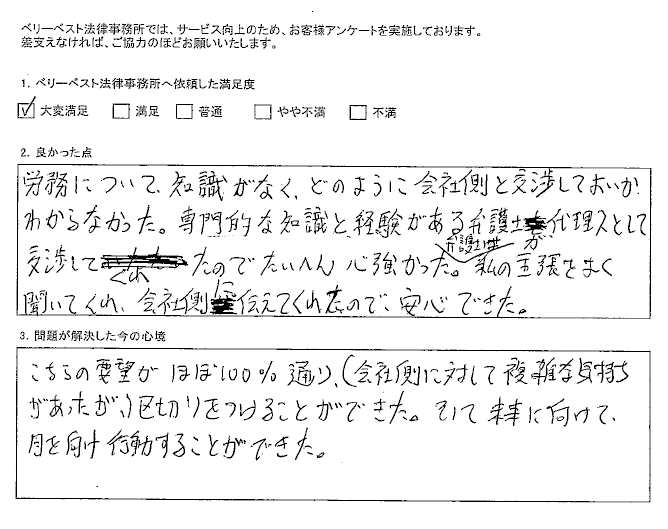 ベリーベスト法律事務所では、サービス向上のため、お客様アンケートを実施しております。
差支えなければ、ご協力のほどお願いいたします。
1. ベリーベスト法律事務所へ依頼した満足度
☑ 大変満足 □ 満足 □ 普通 □ やや不満 □ 不満
2. 良かった点
労務について、知識がなく、どのように会社側と交渉しておいか
わからなかった。専門的な知識と経験がある弁護士が代理人として
交渉してくれたのでたいへん心強かった。弁護士は私の主張をよく
聞いてくれ、会社側に伝えてくれたので、安心できた。
3. 問題が解決した今の心境
こちらの要望がほぼ100%通り、(会社側に対して複雑な気持ち
があったが、)区切りをつけることができた。そして未来に向けて、
目を向け行動することができた。